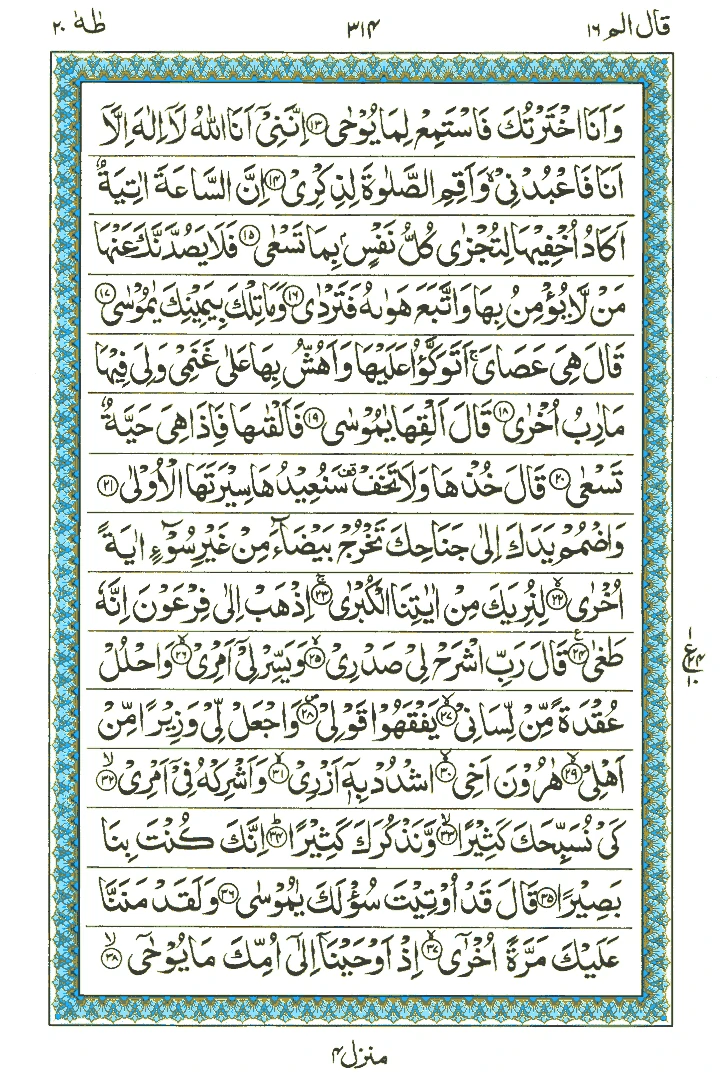 قال الم ١٦ ٣١٤ طٰهٰ ٢٠
وَاَنَا اخْتَرْتُكَ فَاسْتَمِعْ لِمَا يُوْحٰى ﴿١٣﴾ اِنَّنِيْٓ اَنَا اللّٰهُ لَآ اِلٰهَ اِلَّآ
اَنَا فَاعْبُدْنِيْ ۙ وَاَقِمِ الصَّلٰوةَ لِذِكْرِيْ ﴿١٤﴾ اِنَّ السَّاعَةَ اٰتِيَةٌ
اَكَادُ اُخْفِيْهَا لِتُجْزٰى كُلُّ نَفْسٍۢ بِمَا تَسْعٰى ﴿١٥﴾ فَلَا يَصُدَّنَّكَ عَنْهَا
مَنْ لَّا يُؤْمِنُ بِهَا وَاتَّبَعَ هَوٰىهُ فَتَرْدٰى ﴿١٦﴾ وَمَا تِلْكَ بِيَمِيْنِكَ يٰمُوْسٰى ﴿١٧﴾
قَالَ هِيَ عَصَايَ ۚ اَتَوَكَّؤُا عَلَيْهَا وَاَهُشُّ بِهَا عَلٰى غَنَمِيْ وَلِيَ فِيْهَا
مَاٰرِبُ اُخْرٰى ﴿١٨﴾ قَالَ اَلْقِهَا يٰمُوْسٰى ﴿١٩﴾ فَاَلْقٰىهَا فَاِذَا هِيَ حَيَّةٌ
تَسْعٰى ﴿٢٠﴾ قَالَ خُذْهَا وَلَا تَخَفْ ۥقف سَنُعِيْدُهَا سِيْرَتَهَا الْاُوْلٰى ﴿٢١﴾
وَاضْمُمْ يَدَكَ اِلٰى جَنَاحِكَ تَخْرُجْ بَيْضَآءَ مِنْ غَيْرِ سُوْٓءٍ اٰيَةً
اُخْرٰى ﴿٢٢﴾ لِنُرِيَكَ مِنْ اٰيٰتِنَا الْكُبْرٰى ﴿٢٣﴾ اِذْهَبْ اِلٰى فِرْعَوْنَ اِنَّهٗ
طَغٰى ﴿٢٤﴾ قَالَ رَبِّ اشْرَحْ لِيْ صَدْرِيْ ﴿٢٥﴾ وَيَسِّرْ لِيْٓ اَمْرِيْ ﴿٢٦﴾ وَاحْلُلْ
عُقْدَةً مِّنْ لِّسَانِيْ ﴿٢٧﴾ يَفْقَهُوْا قَوْلِيْ ﴿٢٨﴾ وَاجْعَلْ لِّيْ وَزِيْرًا مِّنْ
اَهْلِيْ ﴿٢٩﴾ هٰرُوْنَ اَخِي ﴿٣٠﴾ اشْدُدْ بِهٖٓ اَزْرِيْ ﴿٣١﴾ وَاَشْرِكْهُ فِيْٓ اَمْرِيْ ﴿٣٢﴾
كَيْ نُسَبِّحَكَ كَثِيْرًا ﴿٣٣﴾ وَّنَذْكُرَكَ كَثِيْرًا ﴿٣٤﴾ اِنَّكَ كُنْتَ بِنَا
بَصِيْرًا ﴿٣٥﴾ قَالَ قَدْ اُوْتِيْتَ سُؤْلَكَ يٰمُوْسٰى ﴿٣٦﴾ وَلَقَدْ مَنَنَّا
عَلَيْكَ مَرَّةً اُخْرٰٓى ﴿٣٧﴾ اِذْ اَوْحَيْنَآ اِلٰٓى اُمِّكَ مَا يُوْحٰٓى ﴿٣٨﴾
١
ع ٢٤
١٠
منزل ٤